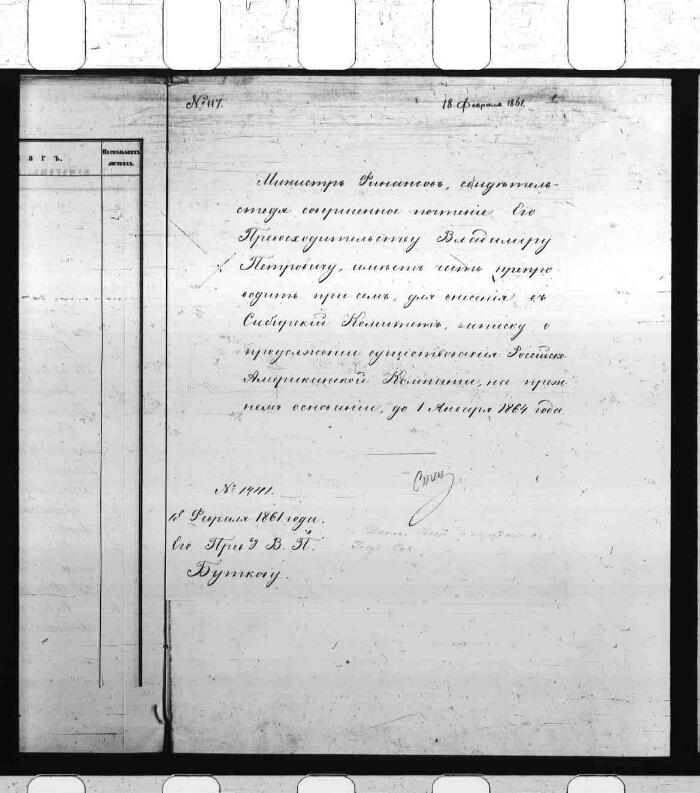 № 117.
18 Февраля 1861.
1
агъ.
На сколькихъ
листахъ.
Министръ Финансовъ, свидѣтель-
ствуя совершенное почтеніе Его
Превосходительству Владиміру
Петровичу, имѣетъ честь препро-
водить при семъ, для внесенія въ
Сибирскій Комитетъ, записку о
продолженіи существованія Россійско
Американской Компаніи, на преж-
немъ основаніи, до 1 Января 1864 года.
№ 1441.
18 Февраля 1861 года.
Его Прев У В. П.
Буткову.